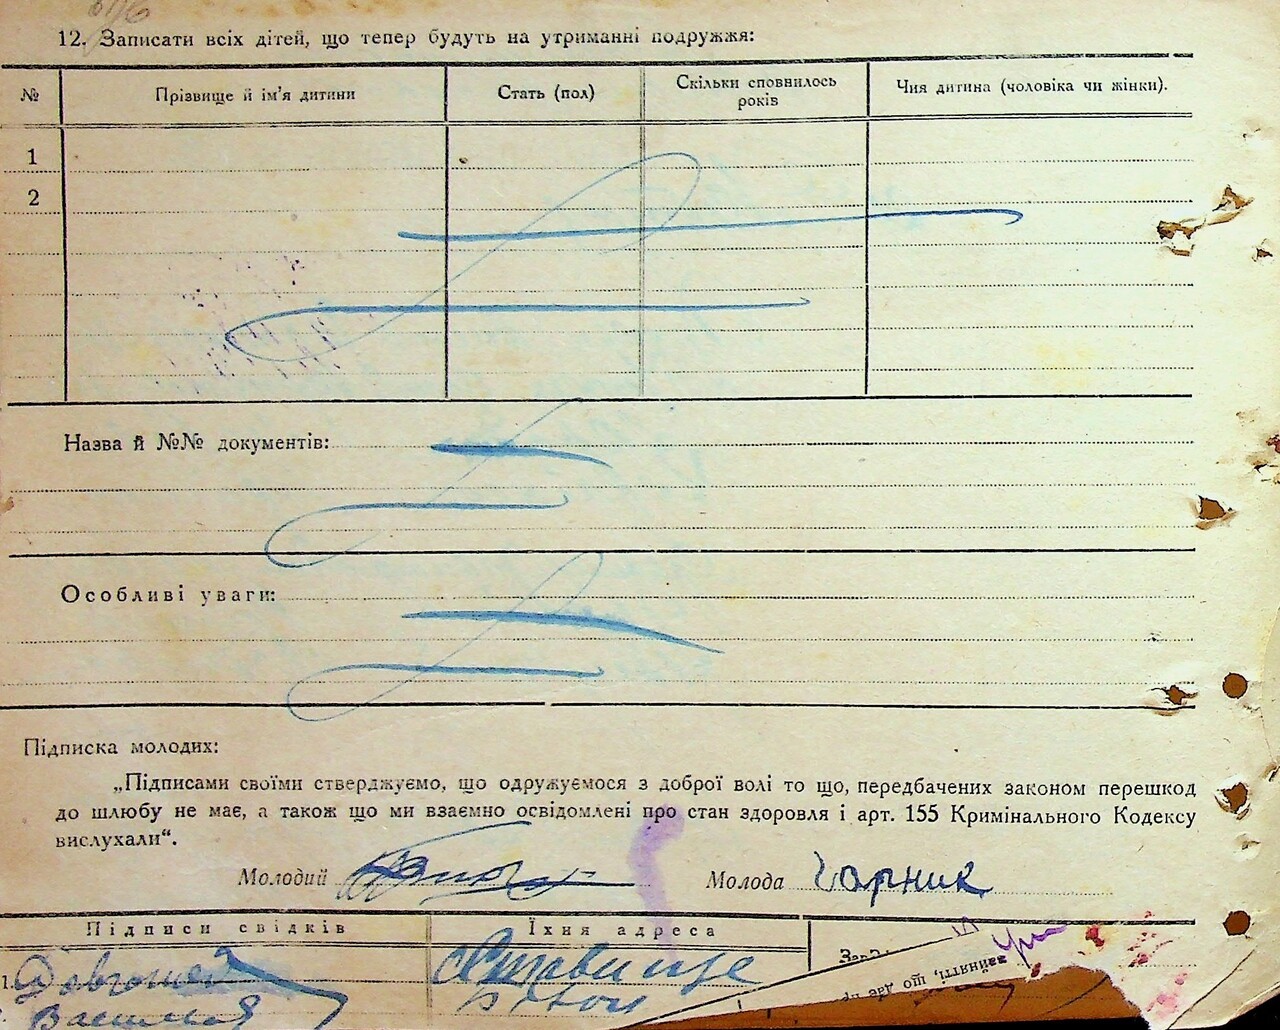 12. Записати всіх дітей, що тепер будуть на утриманні подружжя:
№ Прізвище й ім'я дитини Стать (пол) Скільки сповнилось років Чия дитина (чоловіка чи жінки).
1
2
Назва й №№ документів:
Особливі уваги:
Підписка молодих:
„Підписами своїми стверджуємо, що одружуємося з доброї волі то що, передбачених законом перешкод
до шлюбу не має, а також що ми взаємно освідомлені про стан здоровля і арт. 155 Кримінального Кодексу
вислухали“.
Молодий Молода Гарник
Підписи свідків Їхня адреса
1. Ставище
зайнятті, що дає